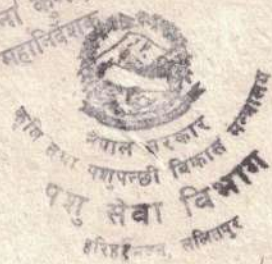 महानिर्देशक
नेपाल सरकार
कृषि तथा पशुपन्छी विकास मन्त्रालय
पशु सेवा विभाग
हरिहरभवन, ललितपुर